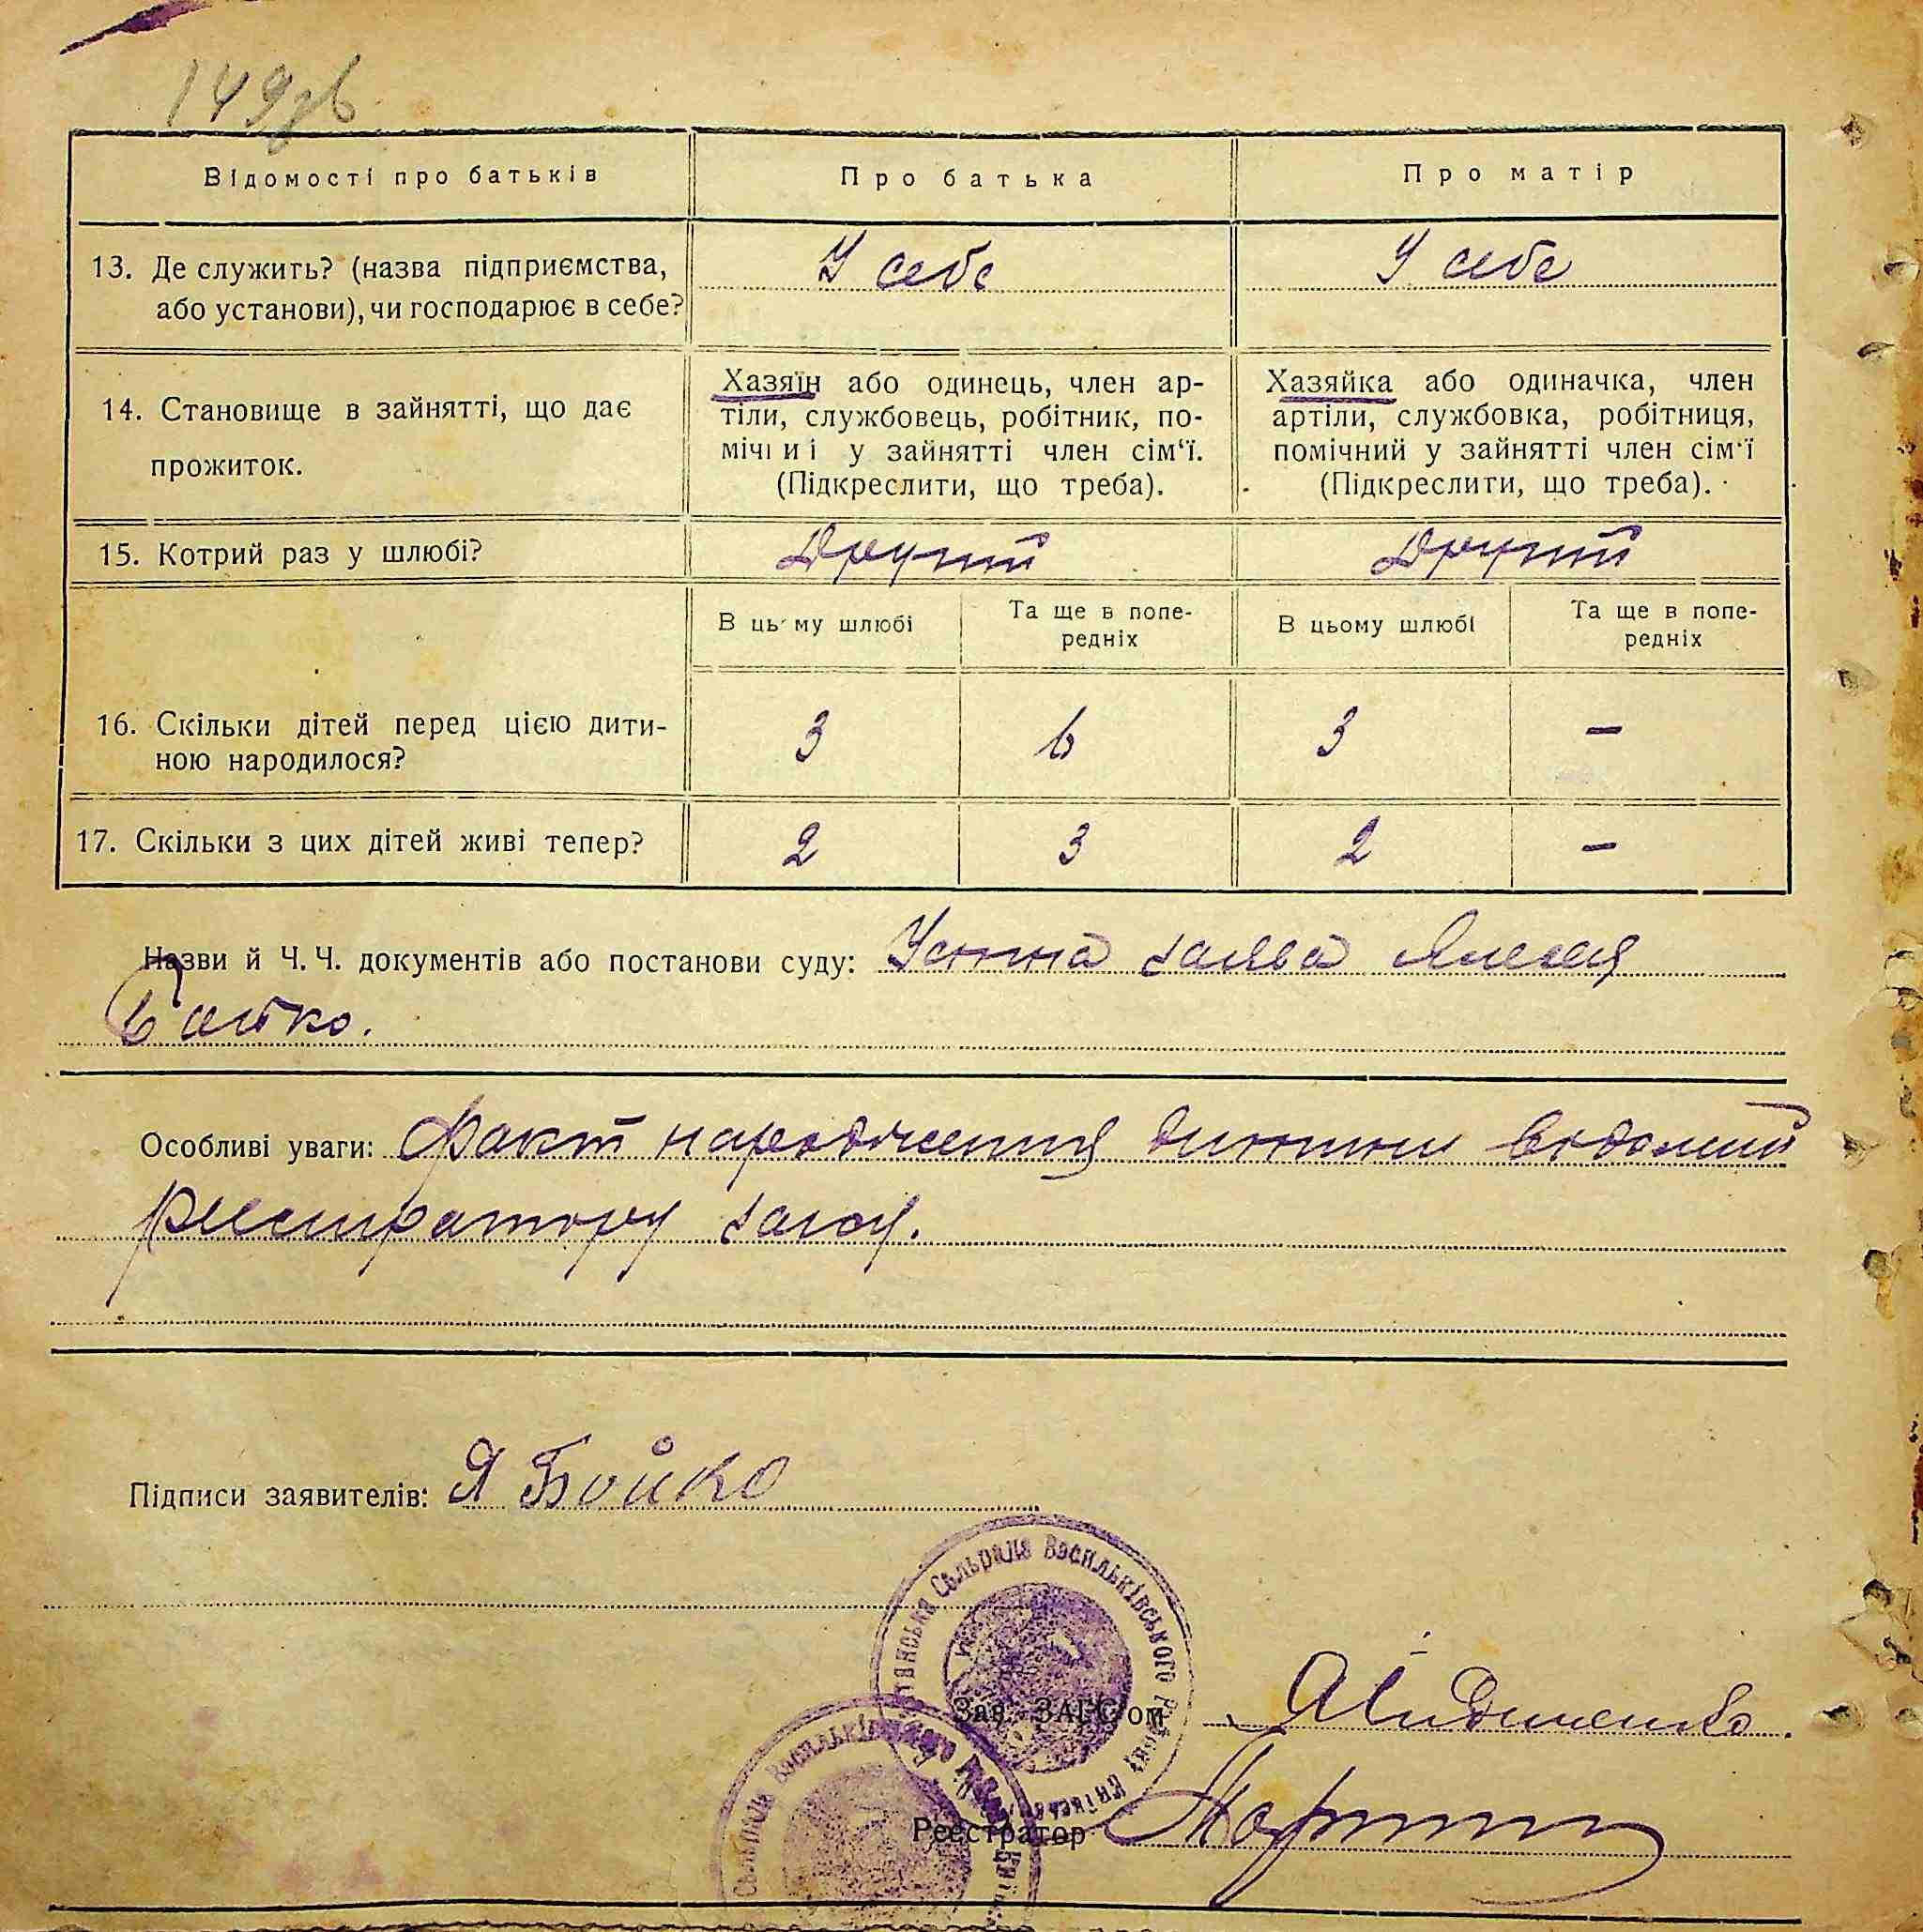 149зв
Відомості про батьків
Про батька
Про матір
13. Де служить? (назва підприємства,
або установи), чи господарює в себе?
У себе
У себе
14. Становище в зайнятті, що дає
прожиток.
Хазяїн або одинець, член ар-
тіли, службовець, робітник, по-
мічниі у зайнятті член сім'ї.
(Підкреслити, що треба).
Хазяйка або одиначка, член
артіли, службовка, робітниця,
помічний у зайнятті член сім'ї
(Підкреслити, що треба).
15. Котрий раз у шлюбі?
Другий
Другий
В цьому шлюбі
Та ще в попе-
редніх
В цьому шлюбі
Та ще в попе-
редніх
16. Скільки дітей перед цією дити-
ною народилося?
3
6
3
–
17. Скільки з цих дітей живі тепер?
2
3
2
–
Назви й Ч. Ч. документів або постанови суду: Устна заява
Бойко.
Особливі уваги: Факт народження дитини відомий
реєстратору загсу.
Підписи заявителів: Я Бойко
Сільрада Васильківського Району Київськ
Зав. ЗАГС'ом
Сільрада Васильківського
Реєстратор